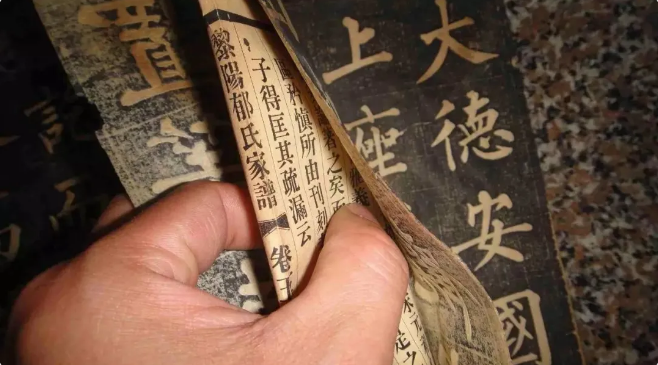 大德安國
上座
之矣
慎所由刊刻
子得匡其疏漏云
黎陽郁氏家譜 卷
置
記而